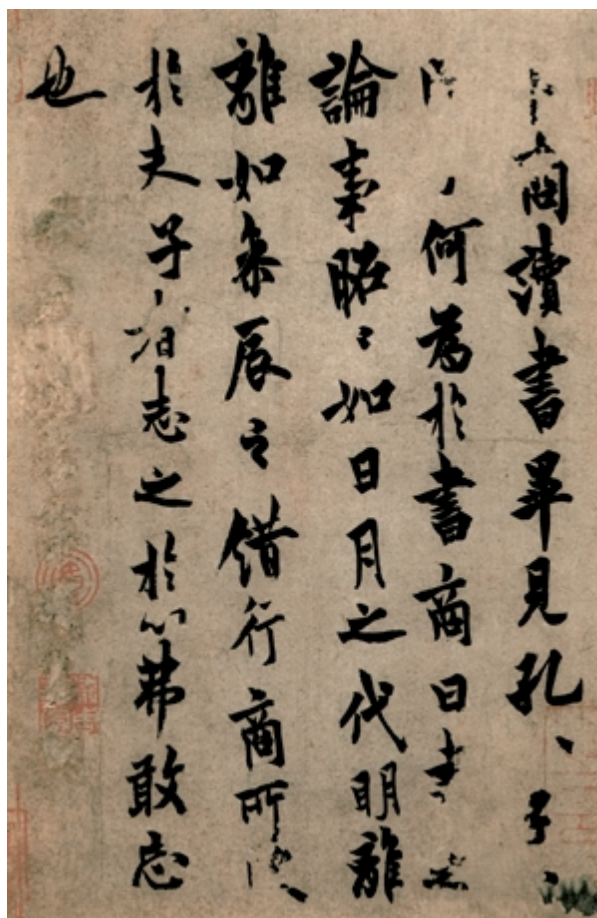 問讀書畢見孔〻子〻
何為於書商曰書之
論事昭〻如日月之代明離
離如參辰之錯行商所
於夫子者志之於心弗敢忘
也